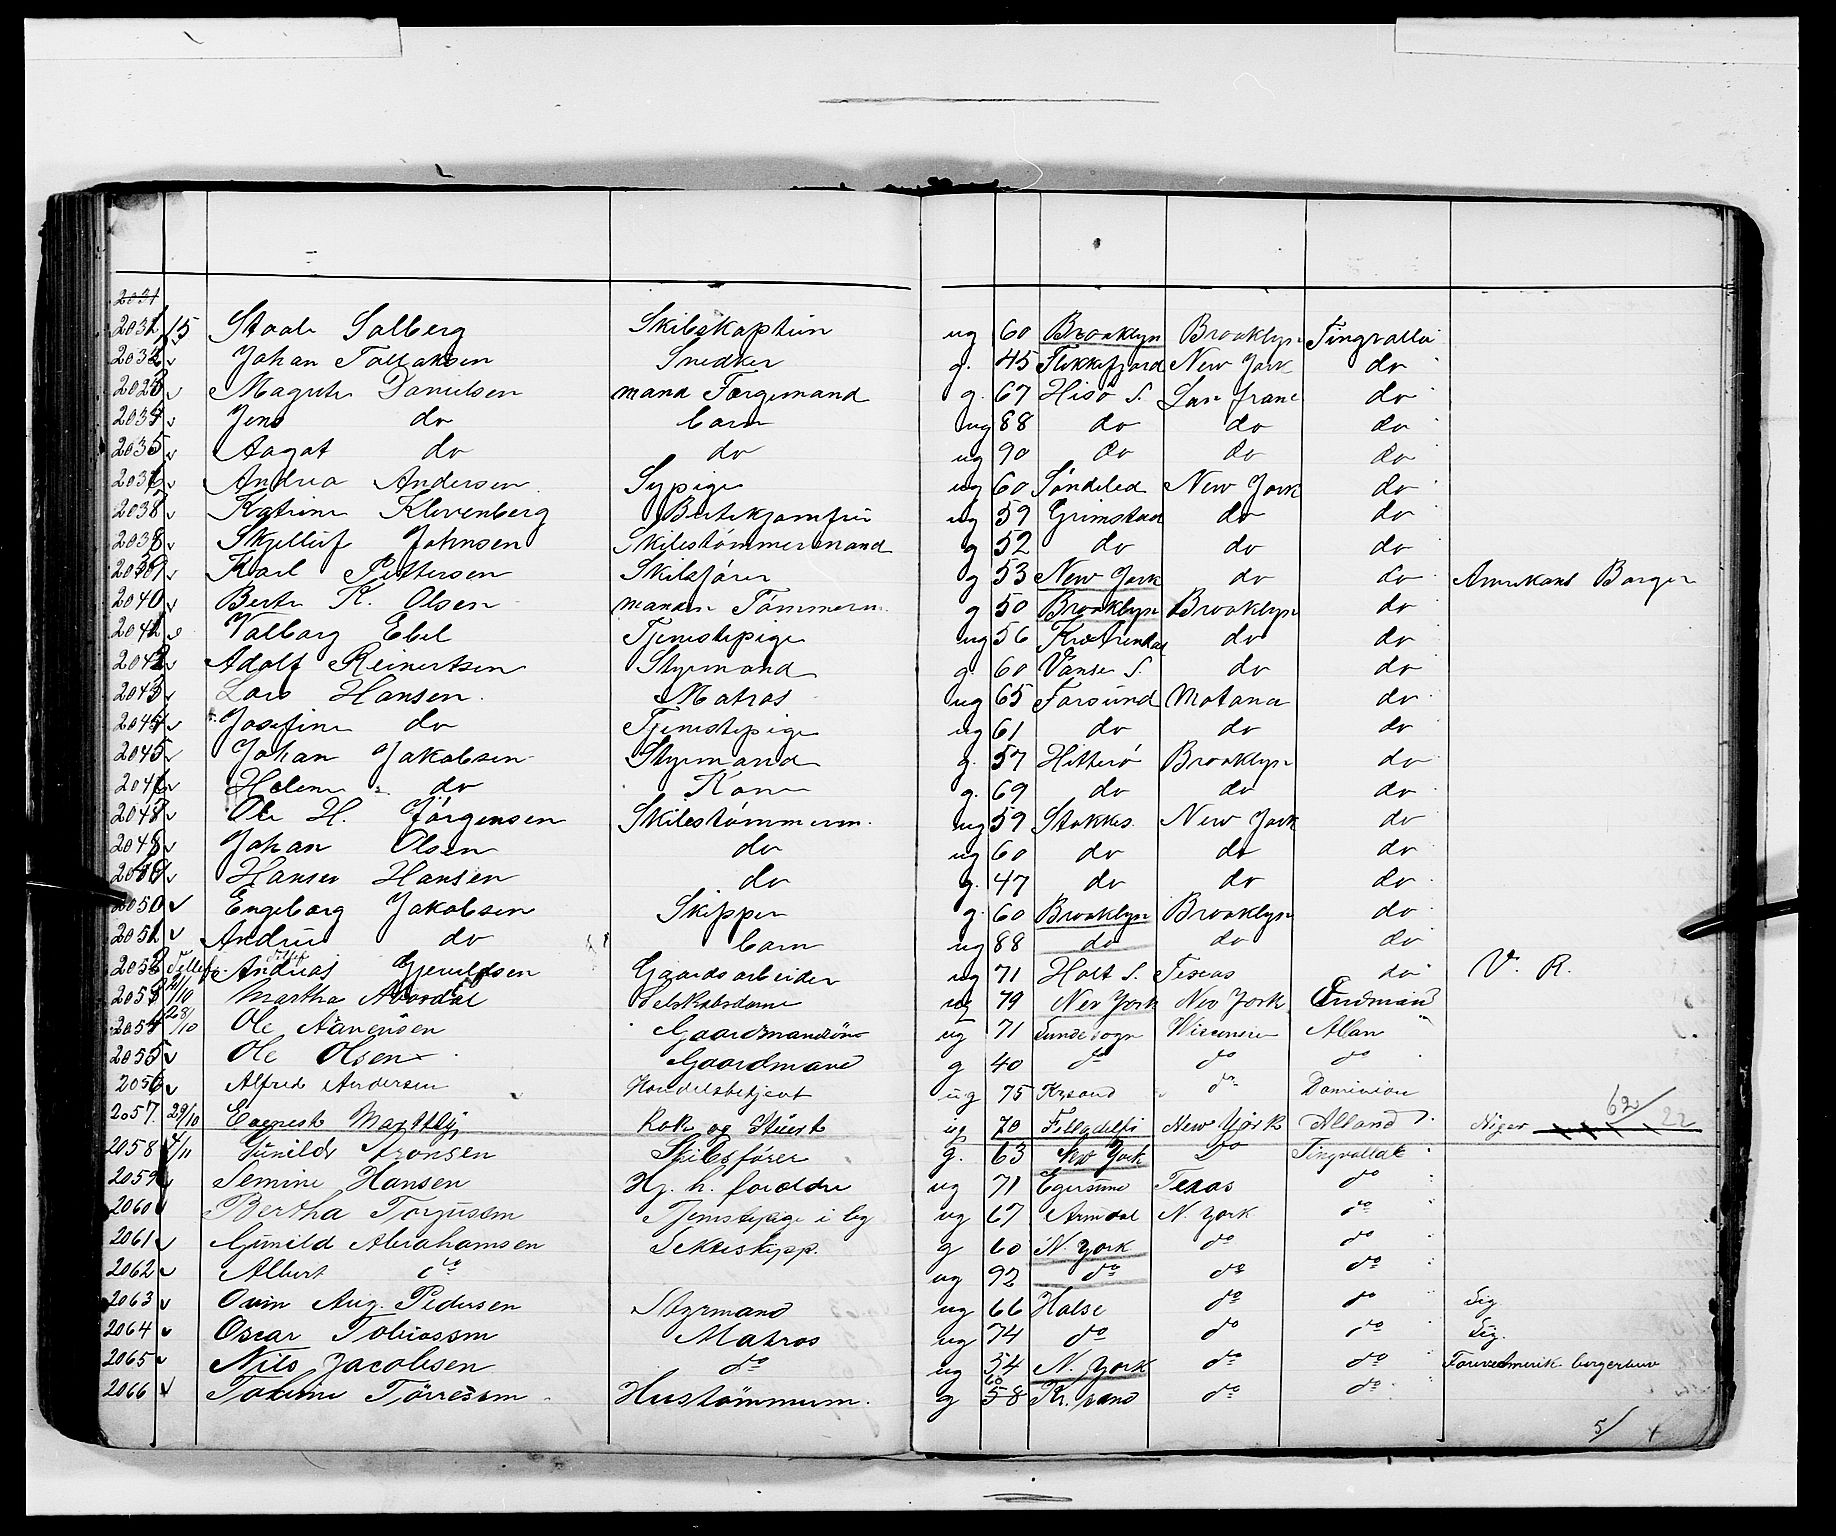 2031
2031 15 Staale Solberg Skibskaptein ug 60 Brooklyn Brooklyn Tingvalla
2032 v Johan Tallaksen Snedker g. 45 Flekkefjord New York do
2033 v Magrete Danielsen mand Færgemand g. 67 Hisø S. San franc do
2034 v Jens do barn ug 88 do do do
2035 v Aagot do do ug 90 do do do
2036 v Andrea Andersen Sypige ug 60 Søndeled New York do
2037 v Katrine Klevenberg Bestekjomfru ug 59 Grimstad do do
2038 v Skjelluf Johnsen Skibstømmermand g 52 do do do
2039 v Karl Pettersen Skibsfører g 53 New York do do Amrikans Borger
2040 v Berte K. Olsen manden Tømmerm. g 50 Brooklyn Brooklyn do
2041 v Valborg Ebel Tjenestepige ug 56 do do
2042 v Adolf Reinertsen Styrmand g. 60 Vanse S. do do
2043 v Lars Hansen Matros ug 65 Farsund Motana do
2044 v Josefine do Tjenestepige ug 61 do do do
2045 v Johan Jakobsen Styrmand g. 57 Hitterø Brooklyn do
2046 v Helene do Kone g. 69 do do do
2047 v Ole H. Jørgensen Skibstømmerm. ug 59 Stokkes. New York do
2048 v Johan Olsen do ug 60 do do do
2049 v Hanses Hansen do g. 47 do do do
2050 v Engeborg Jakobsen Skipper g. 60 Brooklyn Brooklyn do
2051 v Andrie do barn ug 88 do do do
2052 Andreas Gjeruldsen Gaardsarbeider ug 71 Holt S. Texas do V. R.
2053 21/10 Martha Aardal Selskabsdame ug 79 New York New York
2054 28/10 Ole Aanensen Gaardmandsøn ug 71 Sunde sogn Wisconsin Allan
2055 v Ole Olsen Gaardmand g 40 do do do
2056 v Alfred Andersen Handelsbetjent ug 75 Krsand do Dominion
2057 29/10 Eernest Kok og Stuert ug 70 Filladelfi New York Niger 62/22
2058 4/11 Gunilde Aronsen Skibsfører g. 63 New York Do Tingvalla
2059 v Semine Hansen Hj. h. foreldre ug 71 Egersund Texas do
2060 v Bertha Torjussen Tjenstepige i by ug 67 Arendal N. York do
2061 v Gunild Abrahamsen g 60 N. York do do
2062 v Albert do ug 92 do do do
2063 v Aug. Pedersen Styrmand ug 66 Halse do do Sig.
2064 v Oscar Tobiassen Matros ug 74 do do do Sig.
2065 v Nils Jacobsen do ug 54 N. York do do Amerik. borgerbrev
2066 v Tørressen Hustømmerm. g 60 58 Kr. sand do do
5/